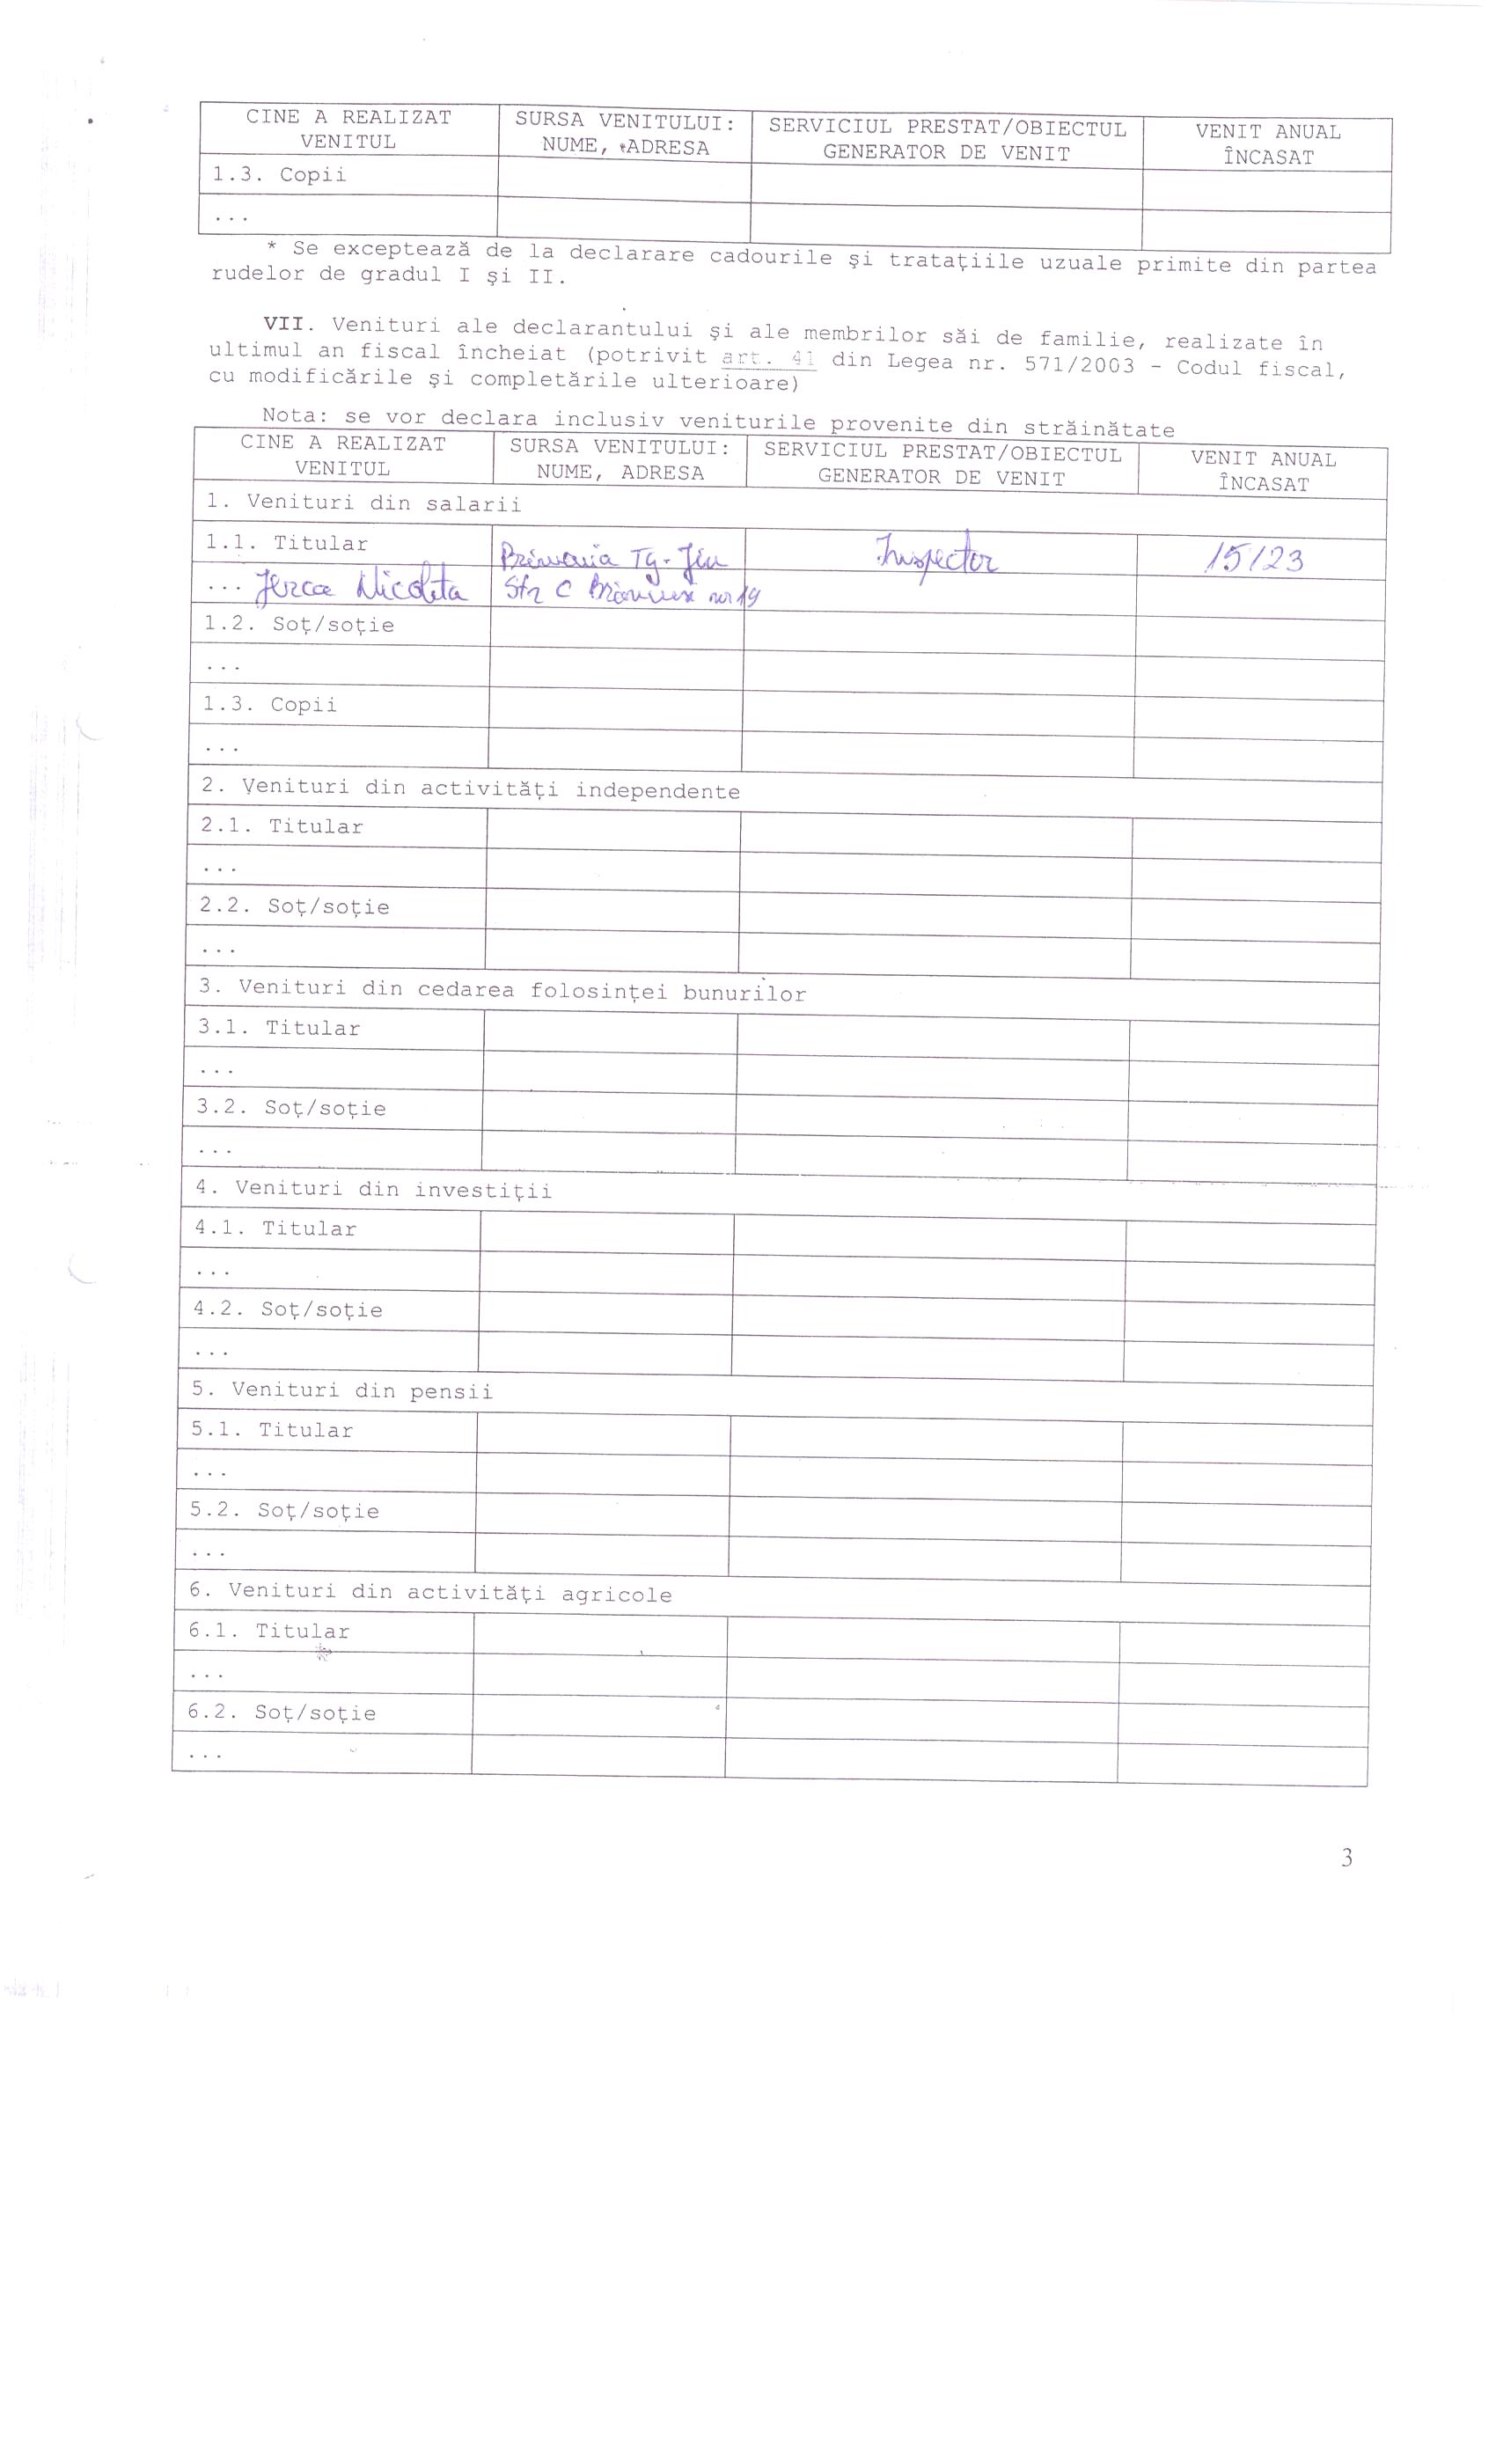 CINE A REALIZAT VENITUL SURSA VENITULUI: NUME, ADRESA SERVICIUL PRESTAT/OBIECTUL GENERATOR DE VENIT VENIT ANUAL ÎNCASAT
1.3. Copii
...
* Se exceptează de la declarare cadourile şi trataţiile uzuale primite din partea
rudelor de gradul I şi II.
VII. Venituri ale declarantului şi ale membrilor săi de familie, realizate în
ultimul an fiscal încheiat (potrivit art. 41 din Legea nr. 571/2003 - Codul fiscal,
cu modificările şi completările ulterioare)
Nota: se vor declara inclusiv veniturile provenite din străinătate
CINE A REALIZAT VENITUL SURSA VENITULUI: NUME, ADRESA SERVICIUL PRESTAT/OBIECTUL GENERATOR DE VENIT VENIT ANUAL ÎNCASAT
1. Venituri din salarii
1.1. Titular Primaria Tg-Jiu Inspector 15123
... Jerca Nicoleta Str C nr 19
1.2. Soţ/soţie
...
1.3. Copii
...
2. Venituri din activităţi independente
2.1. Titular
...
2.2. Soţ/soţie
...
3. Venituri din cedarea folosinţei bunurilor
3.1. Titular
...
3.2. Soţ/soţie
...
4. Venituri din investiţii
4.1. Titular
...
4.2. Soţ/soţie
...
5. Venituri din pensii
5.1. Titular
...
5.2. Soţ/soţie
...
6. Venituri din activităţi agricole
6.1. Titular
...
6.2. Soţ/soţie
...
3